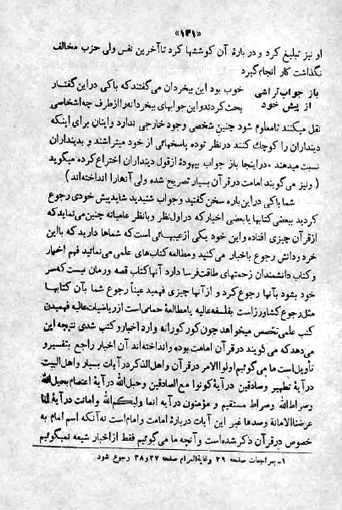 «۱۳۱»
او نیز تبلیغ کرد و در بارهٔ آن کوششها کرد تا آخرین نفس ولی حزب مخالف
نگذاشت کار انجام گیرد
باز جواب تراشی
از پیش خود
خوب بود این بیخردان می‌گفتند که با کی در این گفتار
بحث کردند و این جوابهای بیخردانه را از طرف چه اشخاصی
نقل میکنند تا معلوم شود چنین شخصی وجود خارجی ندارد و اینان برای اینکه
دینداران را کوچک کنند در نظر توده پاسخهای از خود میتراشند و بدینداران
نسبت میدهند «در اینجا باز جواب بیهوده از قول دینداران اختراع کرده میگوید
(و نیز می‌گویند امامت در قرآن بسیار تصریح شده ولی آنها را انداخته‌اند)
شما با کی در این باره سخن گفتید و جواب شنیدید شاید پیش خودی رجوع
کردید ببعضی کتابها یا بعضی اخبار که در اول نظر و بانظر عامیانه چنین می‌نماید که
از قرآن چیزی افتاده و این خود یکی از عیبهائی است که شماها دارید که با این
خرد و دانش رجوع باخبار می کنید و مطالعه کتابهای علمی می‌نمائید فهم اخبار
و کتاب دانشمندان زحمتهای طاقت‌فرسا دارد آنها کتاب قصه ورمان نیست که سر
خود بشود بآنها رجوع کرد و از آنها چیزی فهمید عیناً رجوع شما بآن کتابها
مثل رجوع کشاورز است بفلسفه عالیه یا مطالعهٔ حمامی است از ریاضیات عالیه فهمیدن
کتب علمی تخصص میخواهد چون کورکورانه وارد اخبار و کتب شدی نتیجه این
می‌دهد که می گویند در قرآن امامت بوده و انداخته‌اند آن اخبار راجع بتفسیر و
تأویل است ما می‌گوئیم اولوا الامر در قرآن واهل الذکر در آیات بسیار و اهل البیت
در آیهٔ تطهیر و صادقین در آیهٔ کونوا مع الصادقین و حبل الله در آیهٔ اعتصام بحبل الله
و صراط الله و صراط مستقیم و مؤمنون در آیه انما ولیکم الله و امانت در آیهٔ انا
عرضنا الامانة و صدها غیر این آیات در بارهٔ امامت و امام است نه آنکه اسم امام به
خصوص در قرآن ذکر شده است و آنچه ما می گوئیم فقط از اخبار شیعه نمیگوئیم
۱ - بمراجعات صفحه ۲۹ و غایة المرام صفحه ۳۷ و ۳۸ رجوع شود